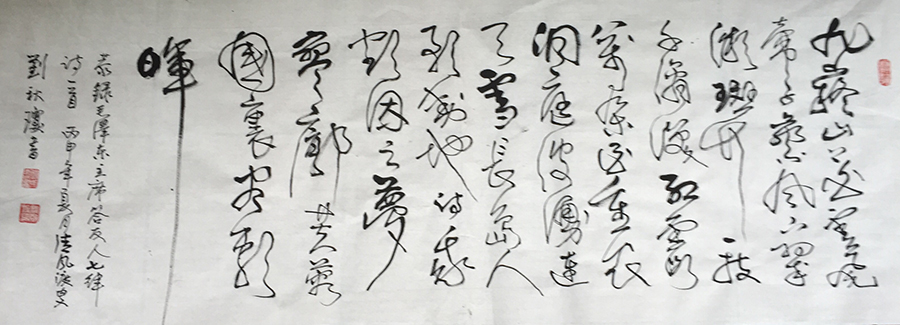 九嶷山上白雲飛
帝子乘風下翠
微斑竹一枝
千滴淚紅霞
萬朵百重衣
洞庭波湧連
天雪長島人
歌動地詩我
欲因之夢
寥廓芙蓉
國裏盡朝
暉
恭録毛澤東主席答友人七律
诗一首 丙申年良月清风渡叟
劉秋書